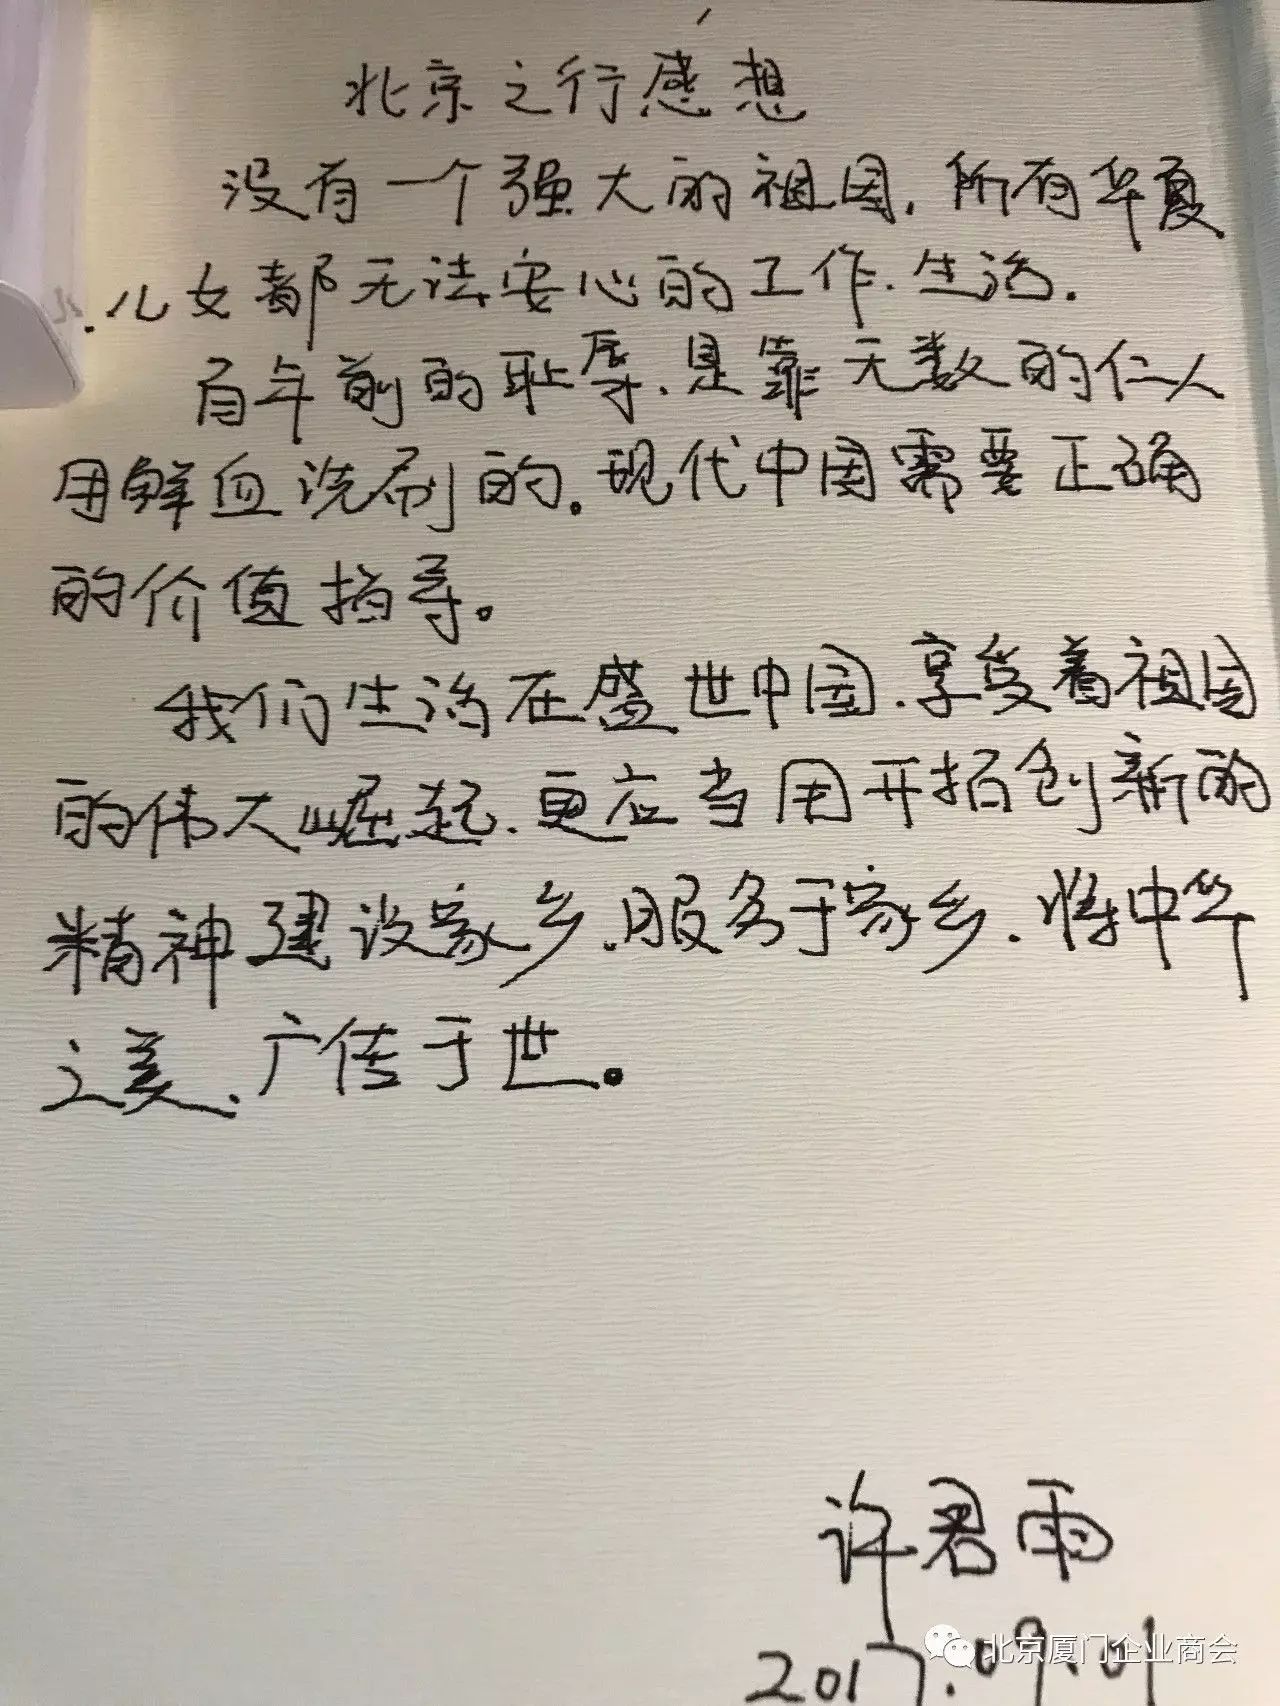 北京之行感想
没有一个强大的祖国，所有华夏
儿女都无法安心的工作、生活．
百年前的耻辱，是靠无数的仁人
用鲜血洗刷的。现代中国需要正确
的价值指导。
我们生活在盛世中国，享受着祖国
的伟大崛起，更应当用开拓创新的
精神建设家乡，服务于家乡．将中华
之美，广传于世。
许君雨
2017.09.01
北京厦门企业商会